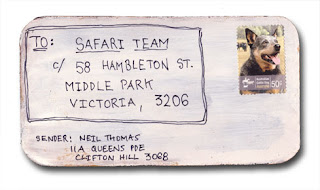 TO: SAFARI TEAM
c/ 58 HAMBLETON ST.
MIDDLE PARK
VICTORIA, 3206
50c
SENDER: NEIL THOMAS
11A QUEENS PDE
CLIFTON HILL 3068